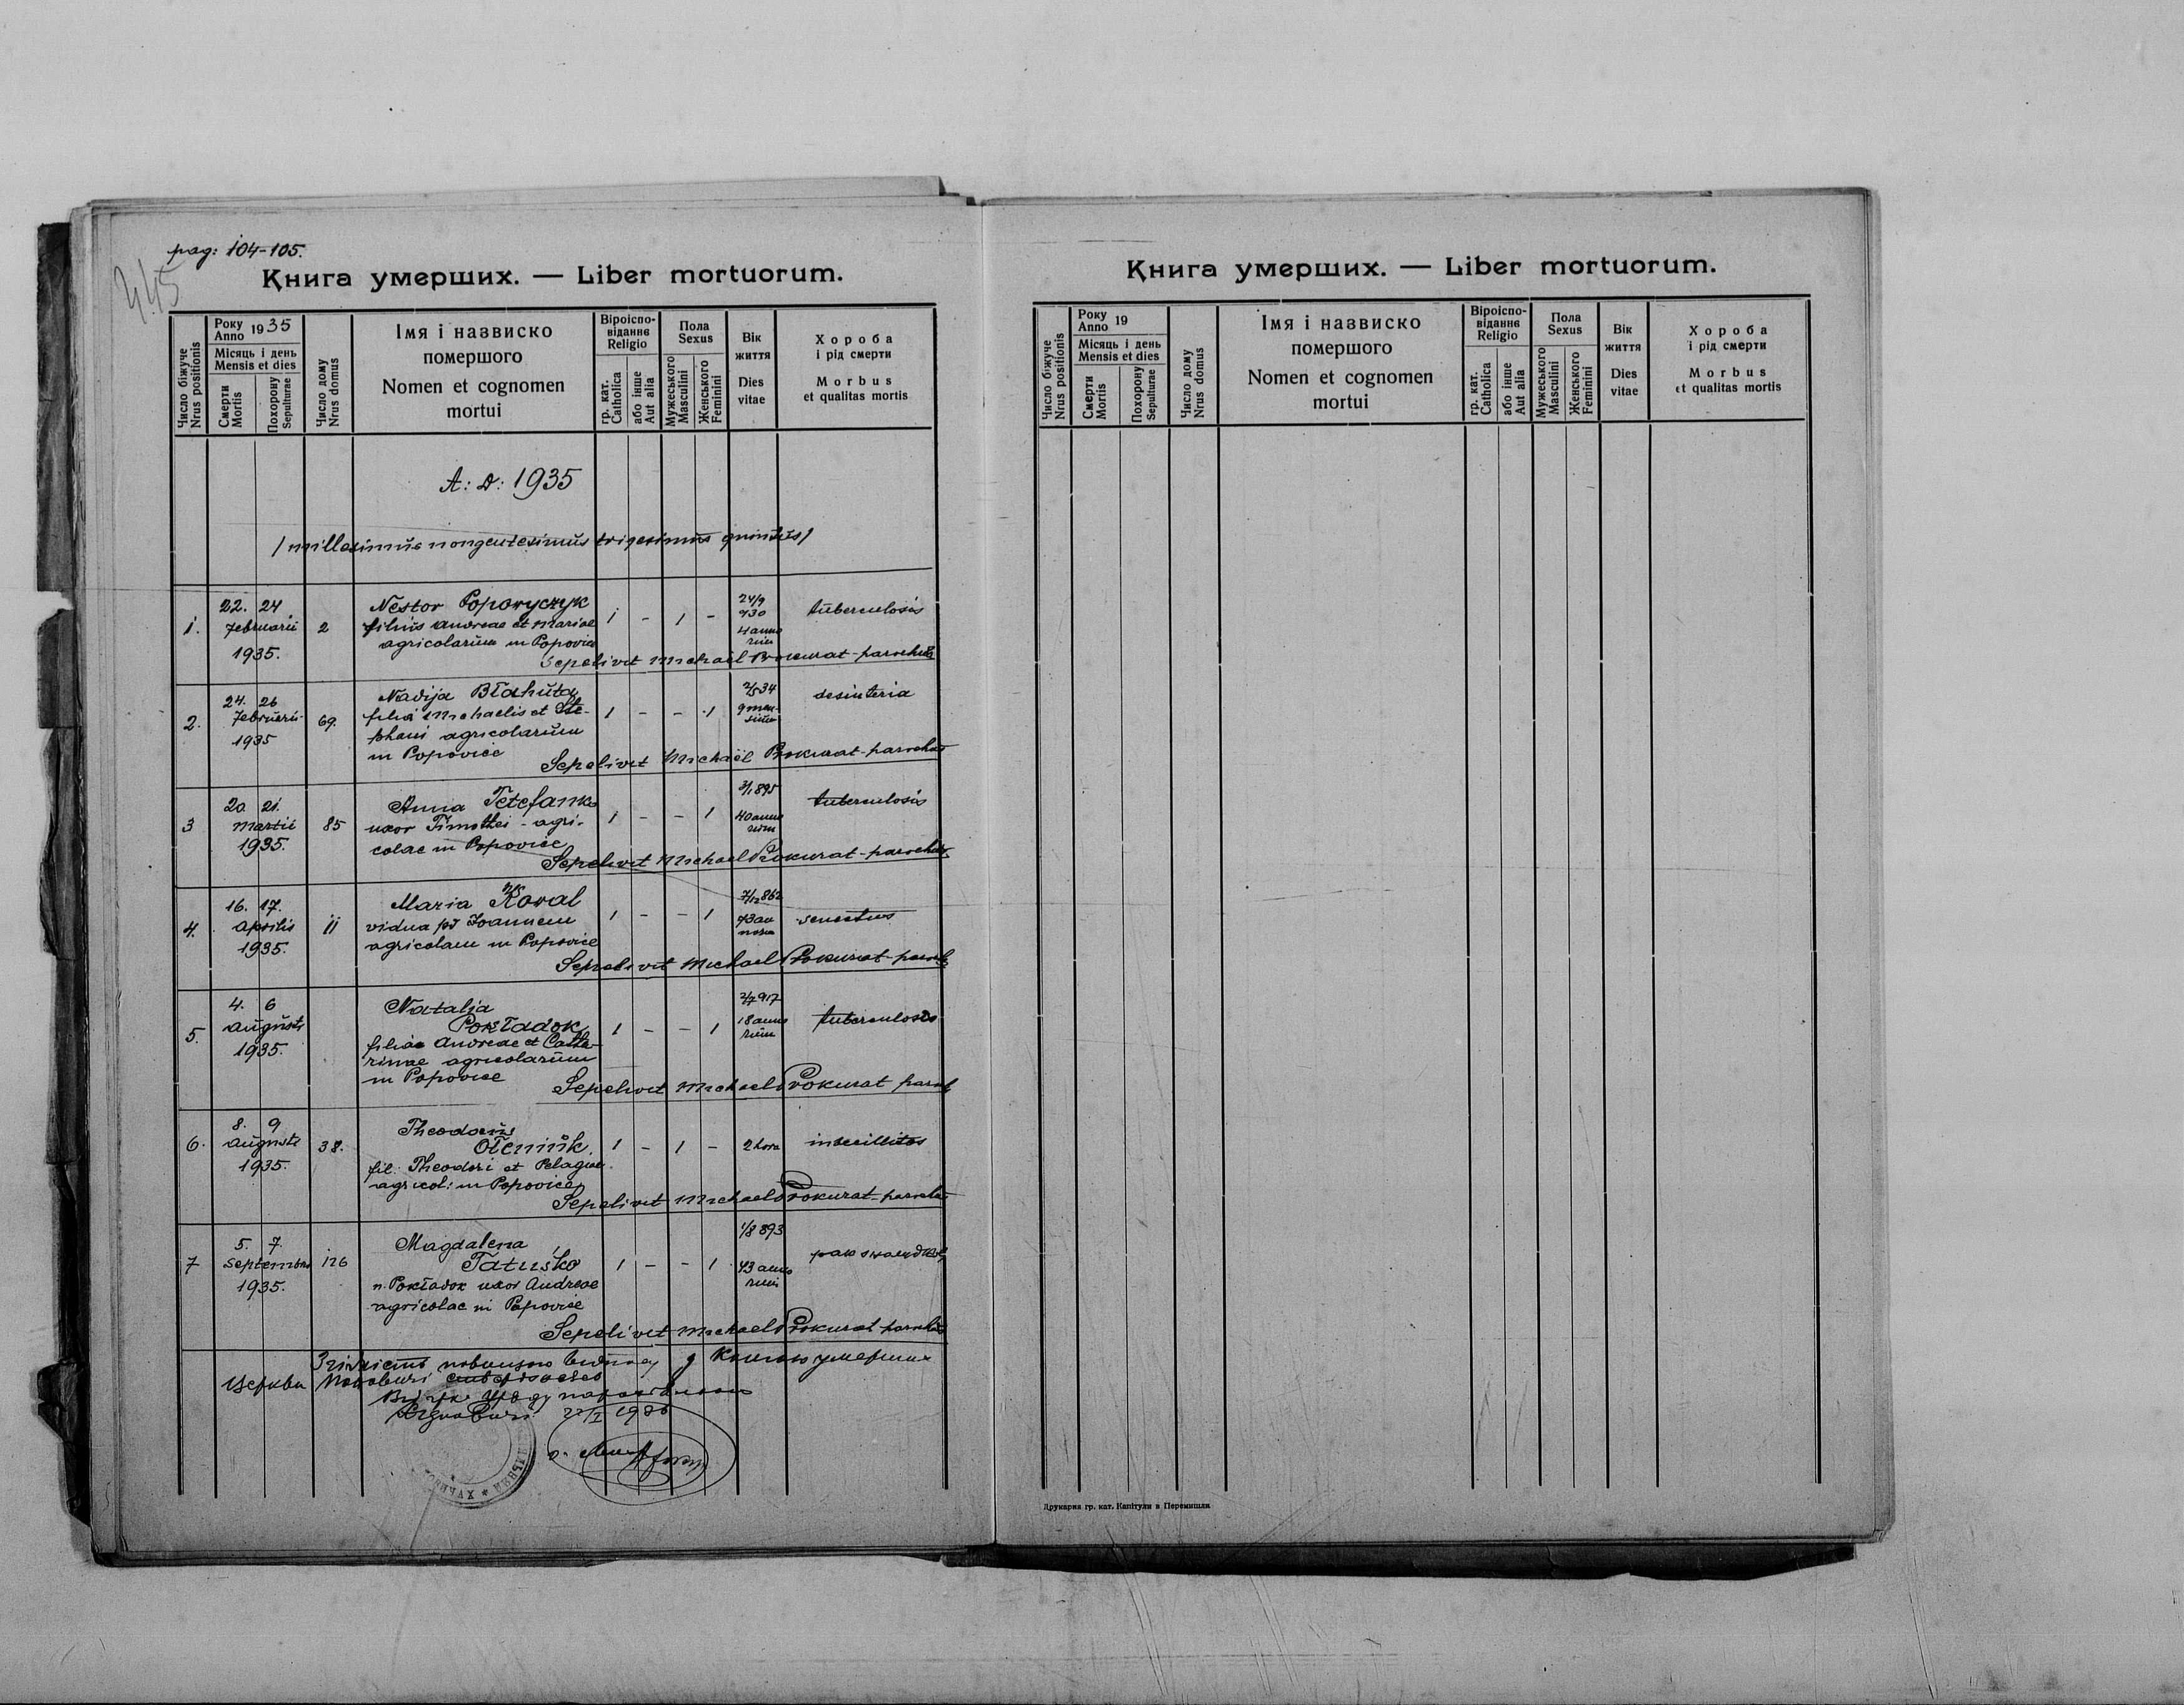 pag: 104-105.
445
Книга умерших. — Liber mortuorum.
Число біжуче
Nrus positionis
Року
Anno 1935
Місяць і день
Mensis et dies
Смерти
Mortis
Похорону
Sepulturae
Число дому
Nrus domus
Імя і назвиско
помершого
Nomen et cognomen
mortui
Віроіспо-
віданнє
Religio
гр. кат.
Catholica
або інше
Aut alia
Пола
Sexus
Мужеського
Masculini
Женського
Feminini
Вік
життя
Dies
vitae
Хороба
і рід смерти
Morbus
et qualitas mortis
A: D: 1935
/ millesimus nongentesimus trigesimus quintus /
1. 22. 24 Februarii 1935. 2
Nestor Popowyczyk
filius Andreae et Mariae
agricolarum in Popovice
1 - 1 -
24/9 930
4 anno
rum
tuberculosis
Sepelivit Michaël Prokurat - parochus
2. 24. 26 Februarii 1935 69.
Nadija Błahuta
filia Michaelis et Ste-
phani agricolarum
in Popovice
1 - - 1
2/5 34
9 men-
sium
desinteria
Sepelivit Michaël Prokurat - parochus
3 20. 21. Martii 1935. 85
Anna Tetefanko
uxor Timothei - agri-
colae in Popovice
1 - - 1
3/1 895
40 anno
rum
tuberculosis
Sepelivit Michael Prokurat - parochus
4. 16. 17. Aprilis 1935. 11
Maria Koval
vidua p/ Joannem
agricolam in Popovice
1 - - 1
7/12 862
73 an
norum
senectus
Sepelivit Michael Prokurat - paroch
5. 4. 6 Augusti 1935.
Natalja
Pokładok
filia Andreae et Cathe-
rinae agricolarum
in Popovice
1 - - 1
2/7 917
18 anno
rum
tuberculosis
Sepelivit Michael Prokurat paroch
6. 8. 9 Augusti 1935. 38.
Theodorus
Ołeniuk
fil: Theodori et Pelagiae
agricol: in Popovice
1 - 1 -
2 hora
imbecillitas
Sepelivit Michael Prokurat - parochus
7 5. 7. Septembris 1935. 126
Magdalena
Tatuśko
n. Pokładok uxor Andreae
agricolae in Popovice
1 - - 1
1/8 893
43 anno
rum
рак
Sepelivit Michael Prokurat parochus
Згідність повищого з Книгою умерших
церкви
1936
Книга умерших. — Liber mortuorum.
Число біжуче
Nrus positionis
Року
Anno 19
Місяць і день
Mensis et dies
Смерти
Mortis
Похорону
Sepulturae
Число дому
Nrus domus
Імя і назвиско
помершого
Nomen et cognomen
mortui
Віроіспо-
віданнє
Religio
гр. кат.
Catholica
або інше
Aut alia
Пола
Sexus
Мужеського
Masculini
Женського
Feminini
Вік
життя
Dies
vitae
Хороба
і рід смерти
Morbus
et qualitas mortis
Друкарня гр. кат. Капітули в Перемишли